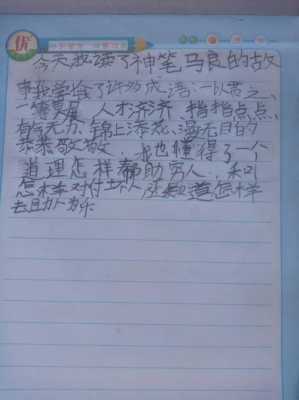 优
今天我读了神笔马良的故
事我学会了许多成语:一以贯之、
一筹莫展、人才济济、指指点点、
有气无力、锦上添花、漫无目的
恭恭敬敬、我也懂得了一个
道理怎样帮助穷人,和
怎样对付坏人 还知道怎样
去助人为乐